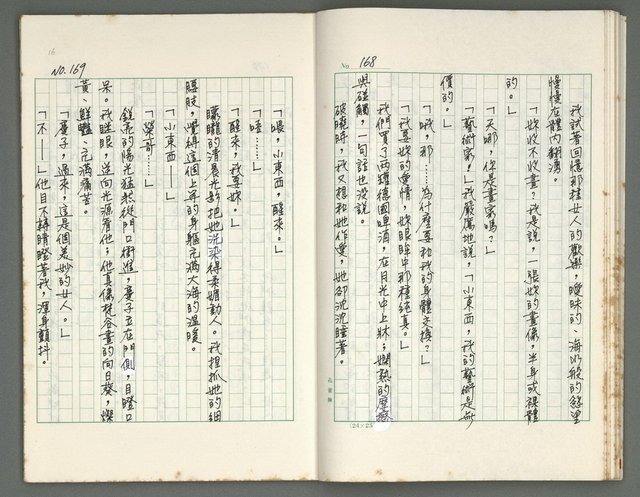 No. 168
我試著回憶那桂女人的歡樂，曖昧的、海水般的慾望
慢慢在體內翻湧。
「妳收不收畫？我是說，一張妳的畫像，半身或裸體
的。」
「天哪！你是畫家嗎？」
「藝術家！」我嚴厲地說，「小東西，我的藝術是無
價的。」
「哦，那……為什麼要和我的身體交換？」
「我要妳的愛情，妳眼眸中那種純真。」
我們買了兩罐德國啤酒，在月光中上牀；嫻熟的壓擠
與碰觸，一句話也沒說。
破曉時，我又想和她作愛，她卻沈沈睡著。
(24×25)
16
NO. 169
「喂，小東西，醒來。」
「唔……」
「醒來，我要妳。」
朦朧的清晨光影把她洗染得柔媚動人。我捏抓她的細
頸，覺得這個上午的身軀充滿大海的溫暖。
「小東西——」
「榮哥——」
鏡亮的陽光猛然從門口衝進，慶子立在門側，目瞪口
呆。我瞇眼，迎向光源看他；他真像梵谷畫的向日葵，燦
黃、鮮豔、充滿痛苦。
「慶子，過來，這是個美妙的女人。」
「不——」他目不轉睛瞪著我，渾身顫抖。